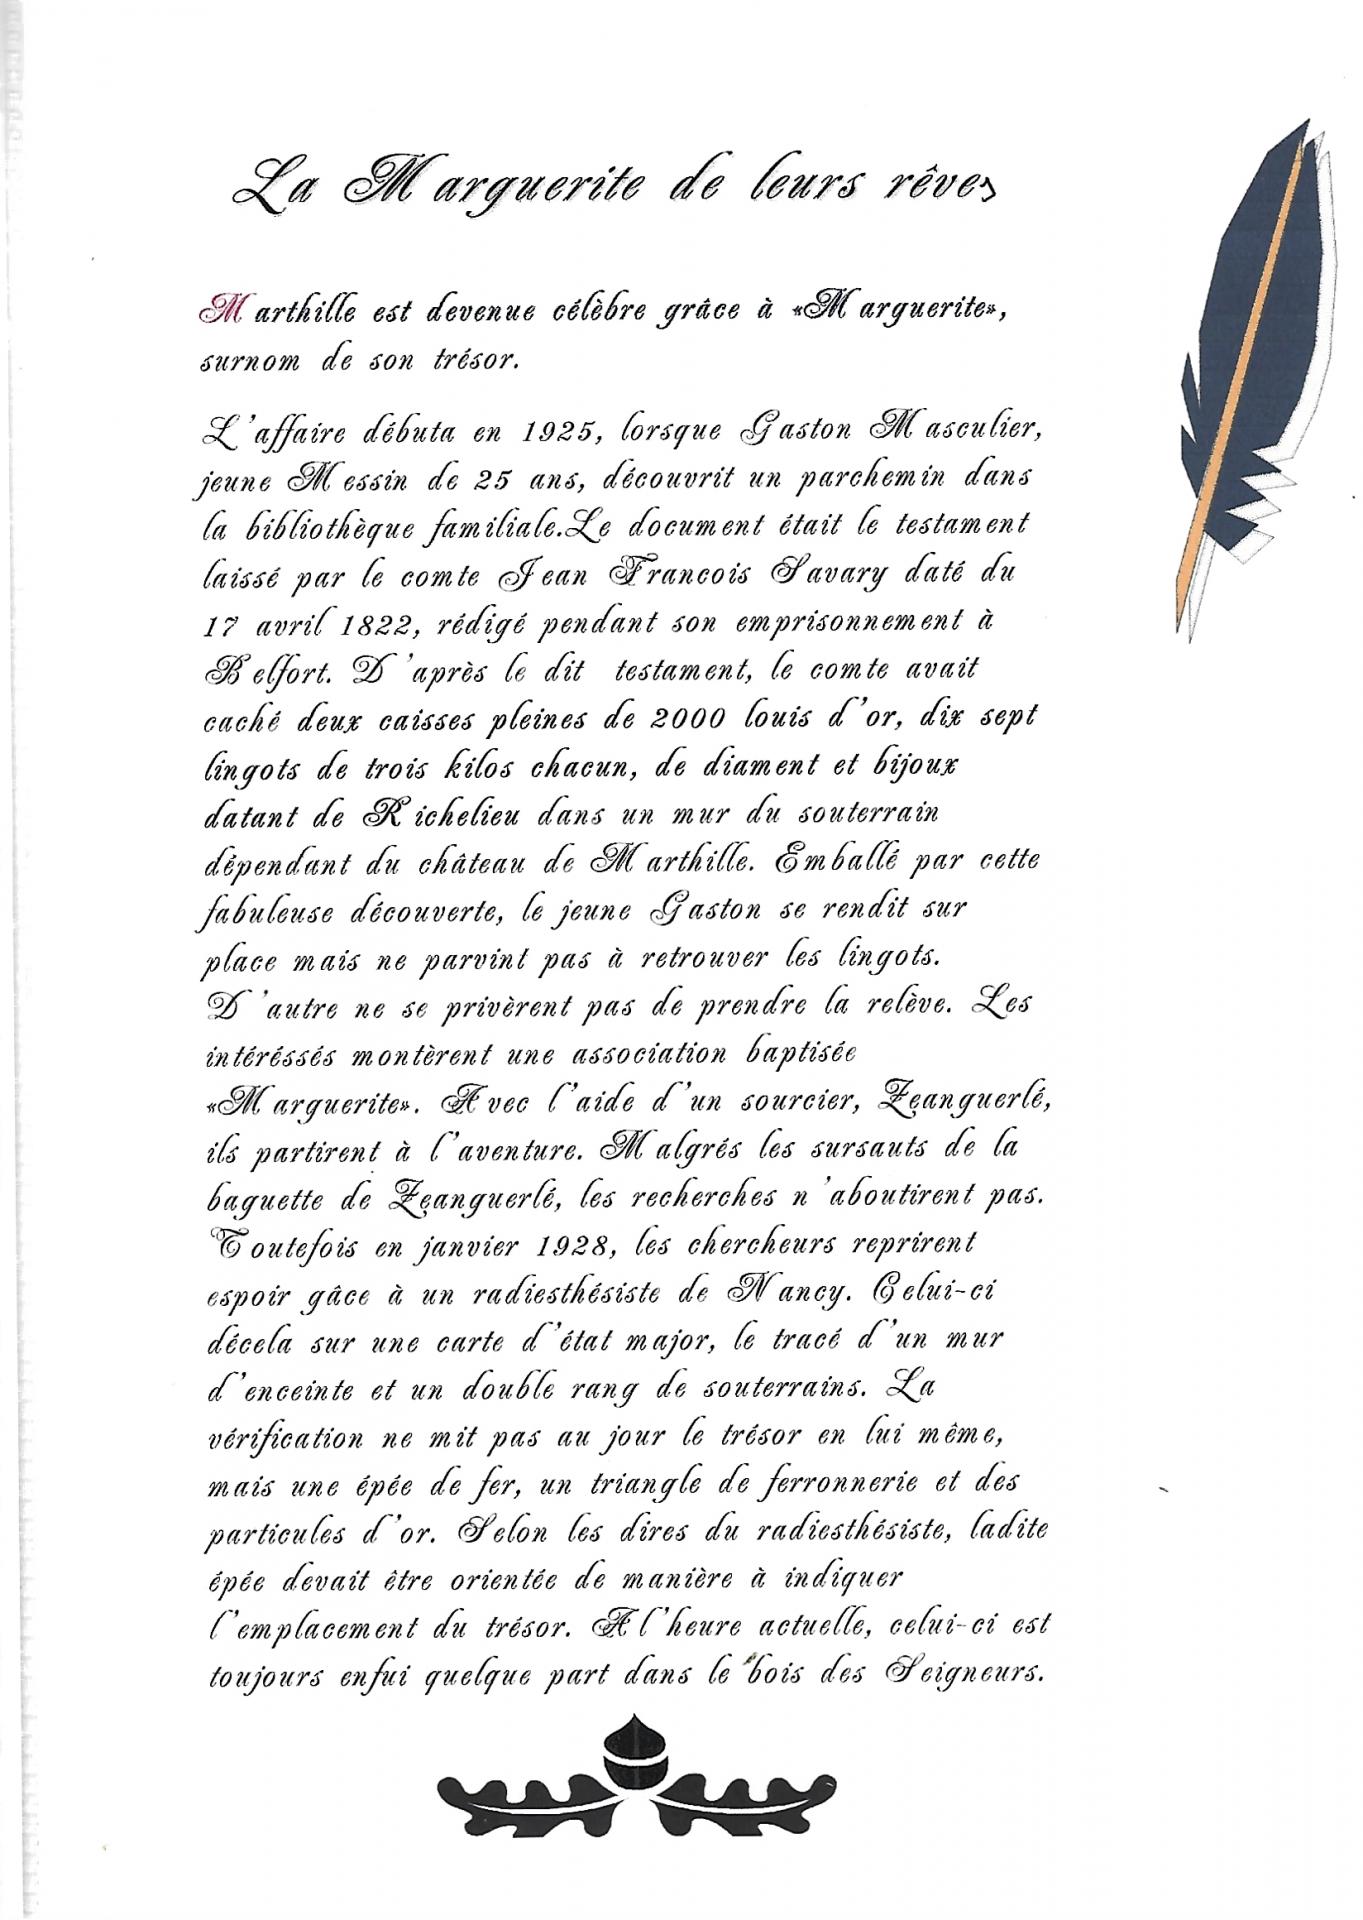 La Marguerite de leurs rêves
Marthille est devenue célèbre grâce à «Marguerite»,
surnom de son trésor.
L'affaire débuta en 1925, lorsque Gaston Masculier,
jeune Messin de 25 ans, découvrit un parchemin dans
la bibliothèque familiale.Le document était le testament
laissé par le comte Jean Francois Savary daté du
17 avril 1822, rédigé pendant son emprisonnement à
Belfort. D'après le dit testament, le comte avait
caché deux caisses pleines de 2000 louis d'or, dix sept
lingots de trois kilos chacun, de diament et bijoux
datant de Richelieu dans un mur du souterrain
dépendant du château de Marthille. Emballé par cette
fabuleuse découverte, le jeune Gaston se rendit sur
place mais ne parvint pas à retrouver les lingots.
D'autre ne se privèrent pas de prendre la relève. Les
intéréssés montèrent une association baptisée
«Marguerite». Avec l'aide d'un sourcier, Zeanguerlé,
ils partirent à l'aventure. Malgrés les sursauts de la
baguette de Zeanguerlé, les recherches n'aboutirent pas.
Toutefois en janvier 1928, les chercheurs reprirent
espoir gâce à un radiesthésiste de Nancy. Celui-ci
décela sur une carte d'état major, le tracé d'un mur
d'enceinte et un double rang de souterrains. La
vérification ne mit pas au jour le trésor en lui même,
mais une épée de fer, un triangle de ferronnerie et des
particules d'or. Selon les dires du radiesthésiste, ladite
épée devait être orientée de manière à indiquer
l'emplacement du trésor. A l'heure actuelle, celui-ci est
toujours enfui quelque part dans le bois des Seigneurs.